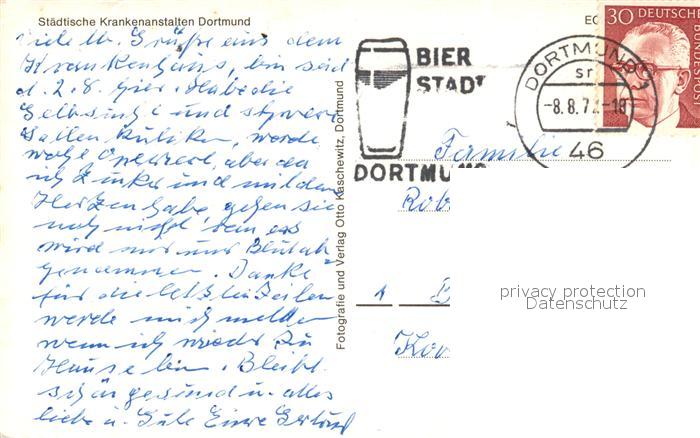 Städtische Krankenanstalten Dortmund
Viele lb. Grüße aus dem
Krankenhaus, bin seid
d. 2.8. hier. Habe die
Gelbsucht und schwere
Gallen Koliken, werde
wohl Operiert, aber da
ich Zucker und mit dem
Herzen habe, gehen sie
noch nicht ran es
wird mir nur Blut ab
genommen. Danke
für die letzten Zeilen
werde mich melden
wenn ich wieder zu
Hause bin. Bleibt
schön gesund u. alles
liebe u. Gute Eure Gertrud
Fotografie und Verlag Otto Kaschewitz, Dortmund
BIER
STADT
DORTMUND
DORTMUND
sr
-8.8.7
-18
46
30 DEUTSCHE
BUNDESPOST
Familie
Rob
privacy protection
Datenschutz